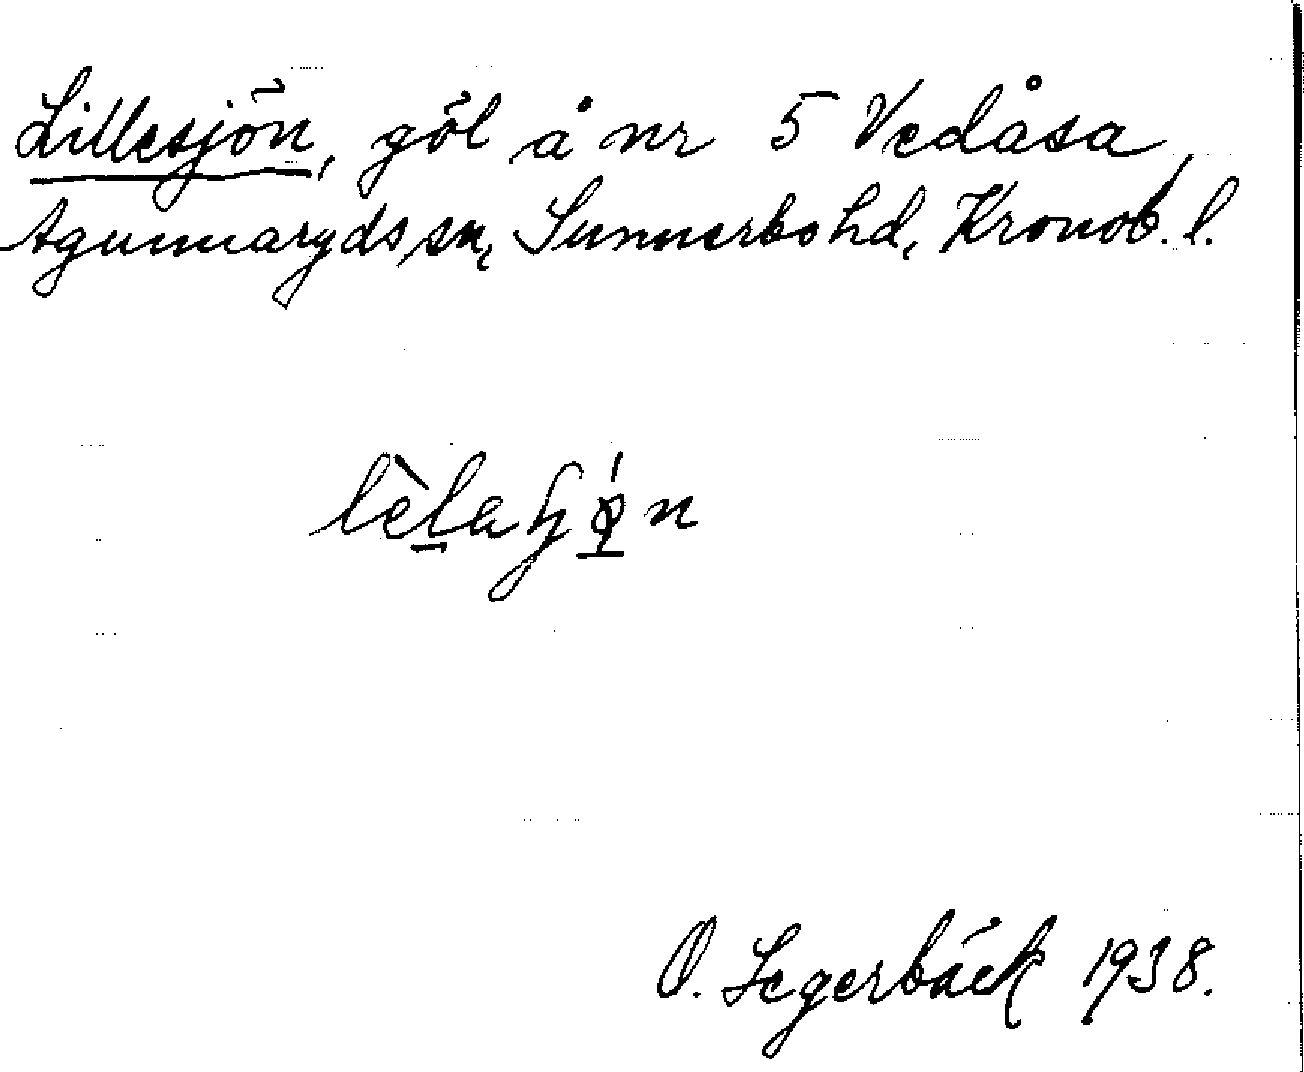 Lillesjön, göl å nr 5 Vedåsa,
Agunnaryds sn, Sunnerbo hd, Kronob. l.
O. Segerbäck 1938.